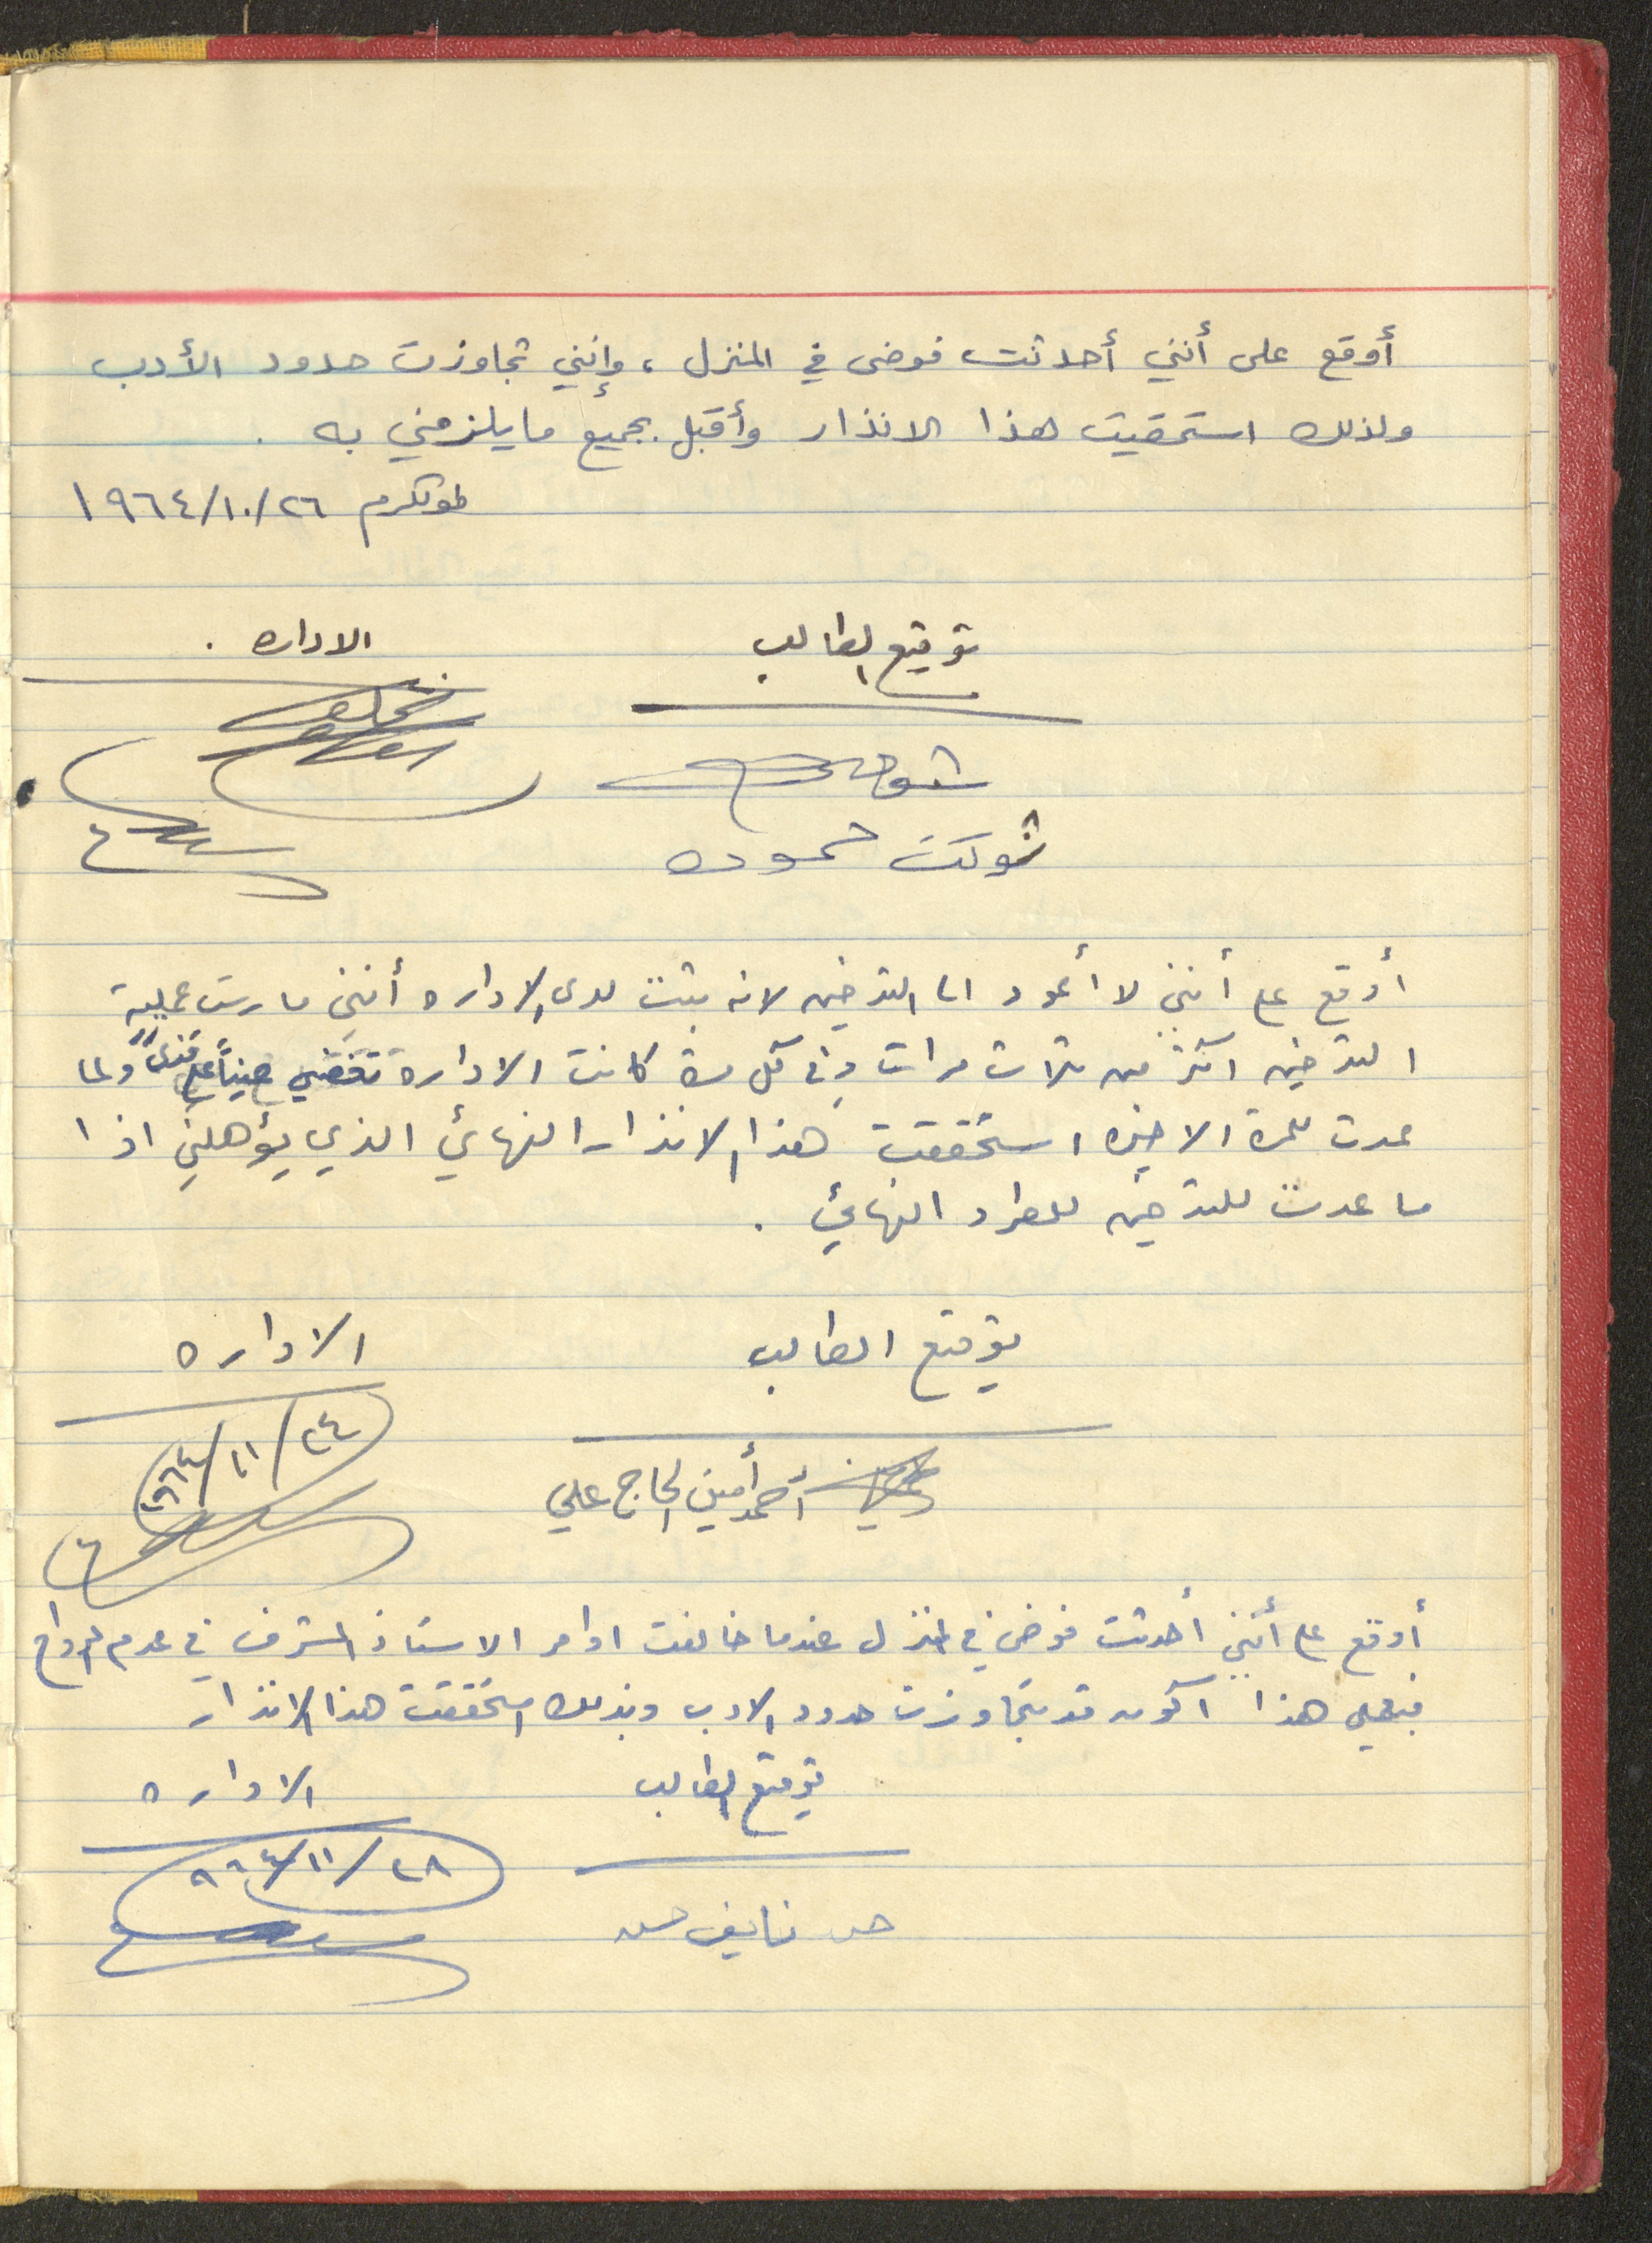 أوقع على أنني أحدثت فوضى في المنزل ، وإنني تجاوزت حدود الأدب
ولذلك استحقيت هذا الانذار وأقبل بجميع ما يلزمني به .
طولكرم ٢٦/١٠/١٩٦٤
توقيع الطالب
الاداره .
شوكت حموده
أوقع على أنني لا أعود الى التدخين لانه ثبت لدى الاداره أنني مارست عملية
التدخين اكثر من ثلاث مرات وفي كل مرة كانت الاداره ولما
عدت للمرة الاخيره استحققت هذا الانذار النهائي الذي يؤهلني اذا
ما عدت للتدخين للطرد النهائي .
توقيع الطالب
الاداره
أحمد أمين الحاج علي
٢٤/١١/١٩٦٤
أوقع على أنني أحدثت فوضى في المنزل عندما خالفت اوامر الاستاذ المشرف في عدم
فبعملي هذا اكون قد تجاوزت حدود الادب وبذلك استحققت هذا الانذار
توقيع الطالب
الاداره
٢٨/١١/٩٦٤
حسن نايف حسن